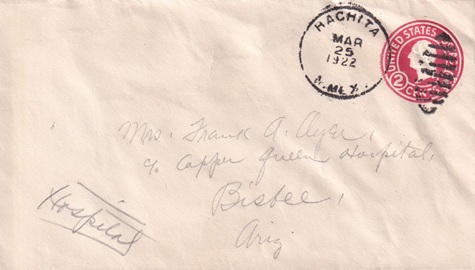 HACHITA
MAR
25
1922
N. MEX.
UNITED STATES
2 CENTS
Mrs. Frank A. Ayer,
c/o Copper Queen Hospital,
Bisbee,
Ariz
Hospital